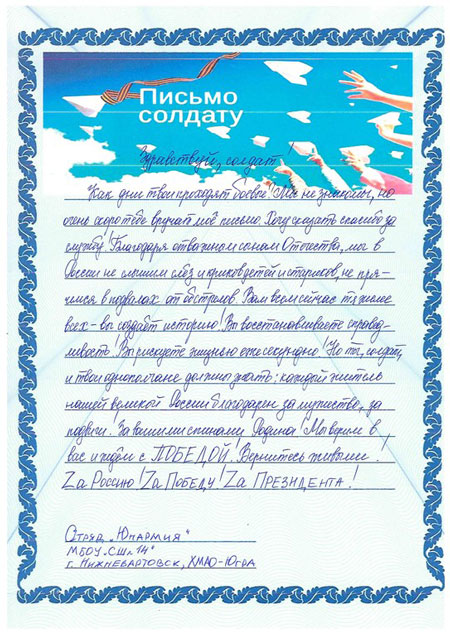 Письмо
солдату
Здравствуй, солдат!
Как дни твои проходят боевые? Мы не знакомы, но
очень скоро тебе вручат моё письмо. Хочу сказать спасибо за
службу! Благодаря отважным сынам Отечества, мы в
России не слышим слёз и криков детей и стариков, не пря-
чемся в подвалах от обстрелов. Вам всем сейчас тяжелее
всех - вы создаёте историю! Вы восстанавливаете справед-
ливость! Вы рискуете жизнью ежесекундно! Но ты, солдат,
и твои однополчане должны знать: каждый житель
нашей великой России благодарен за мужество, за
подвиги. За вашими спинами Родина! Мы верим в
вас и ждём с ПОБЕДОЙ! Вернитесь живыми!
Zа Россию! Zа Победу! Zа Президента!
Отряд „Юнармия"
МБОУ „СШ №14"
г. Нижневартовск, ХМАО-Югра